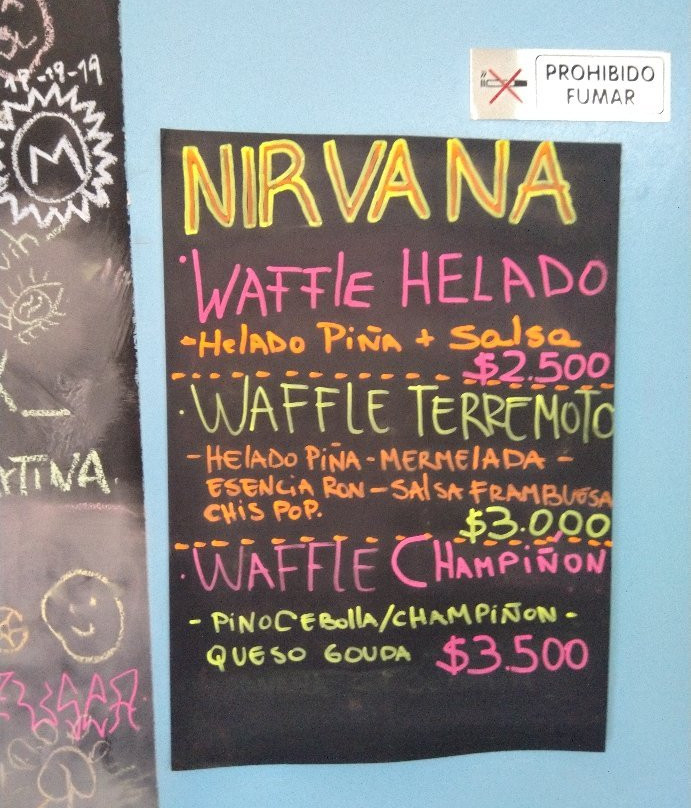 17-19-19
M
PROHIBIDO
FUMAR
NIRVANA
·WAFFLE HELADO
-HELADO PIÑA + Salsa
$2.500
·WAFFLE TERREMOTO
-HELADO PIÑA-MERMELADA-
ESENCIA RON-SALSA FRAMBUESA
CHIS POP.
$3.000
·WAFFLE CHAMPIÑON
-PINOCEBOLLA/CHAMPIÑON-
QUESO GOUDA $3.500